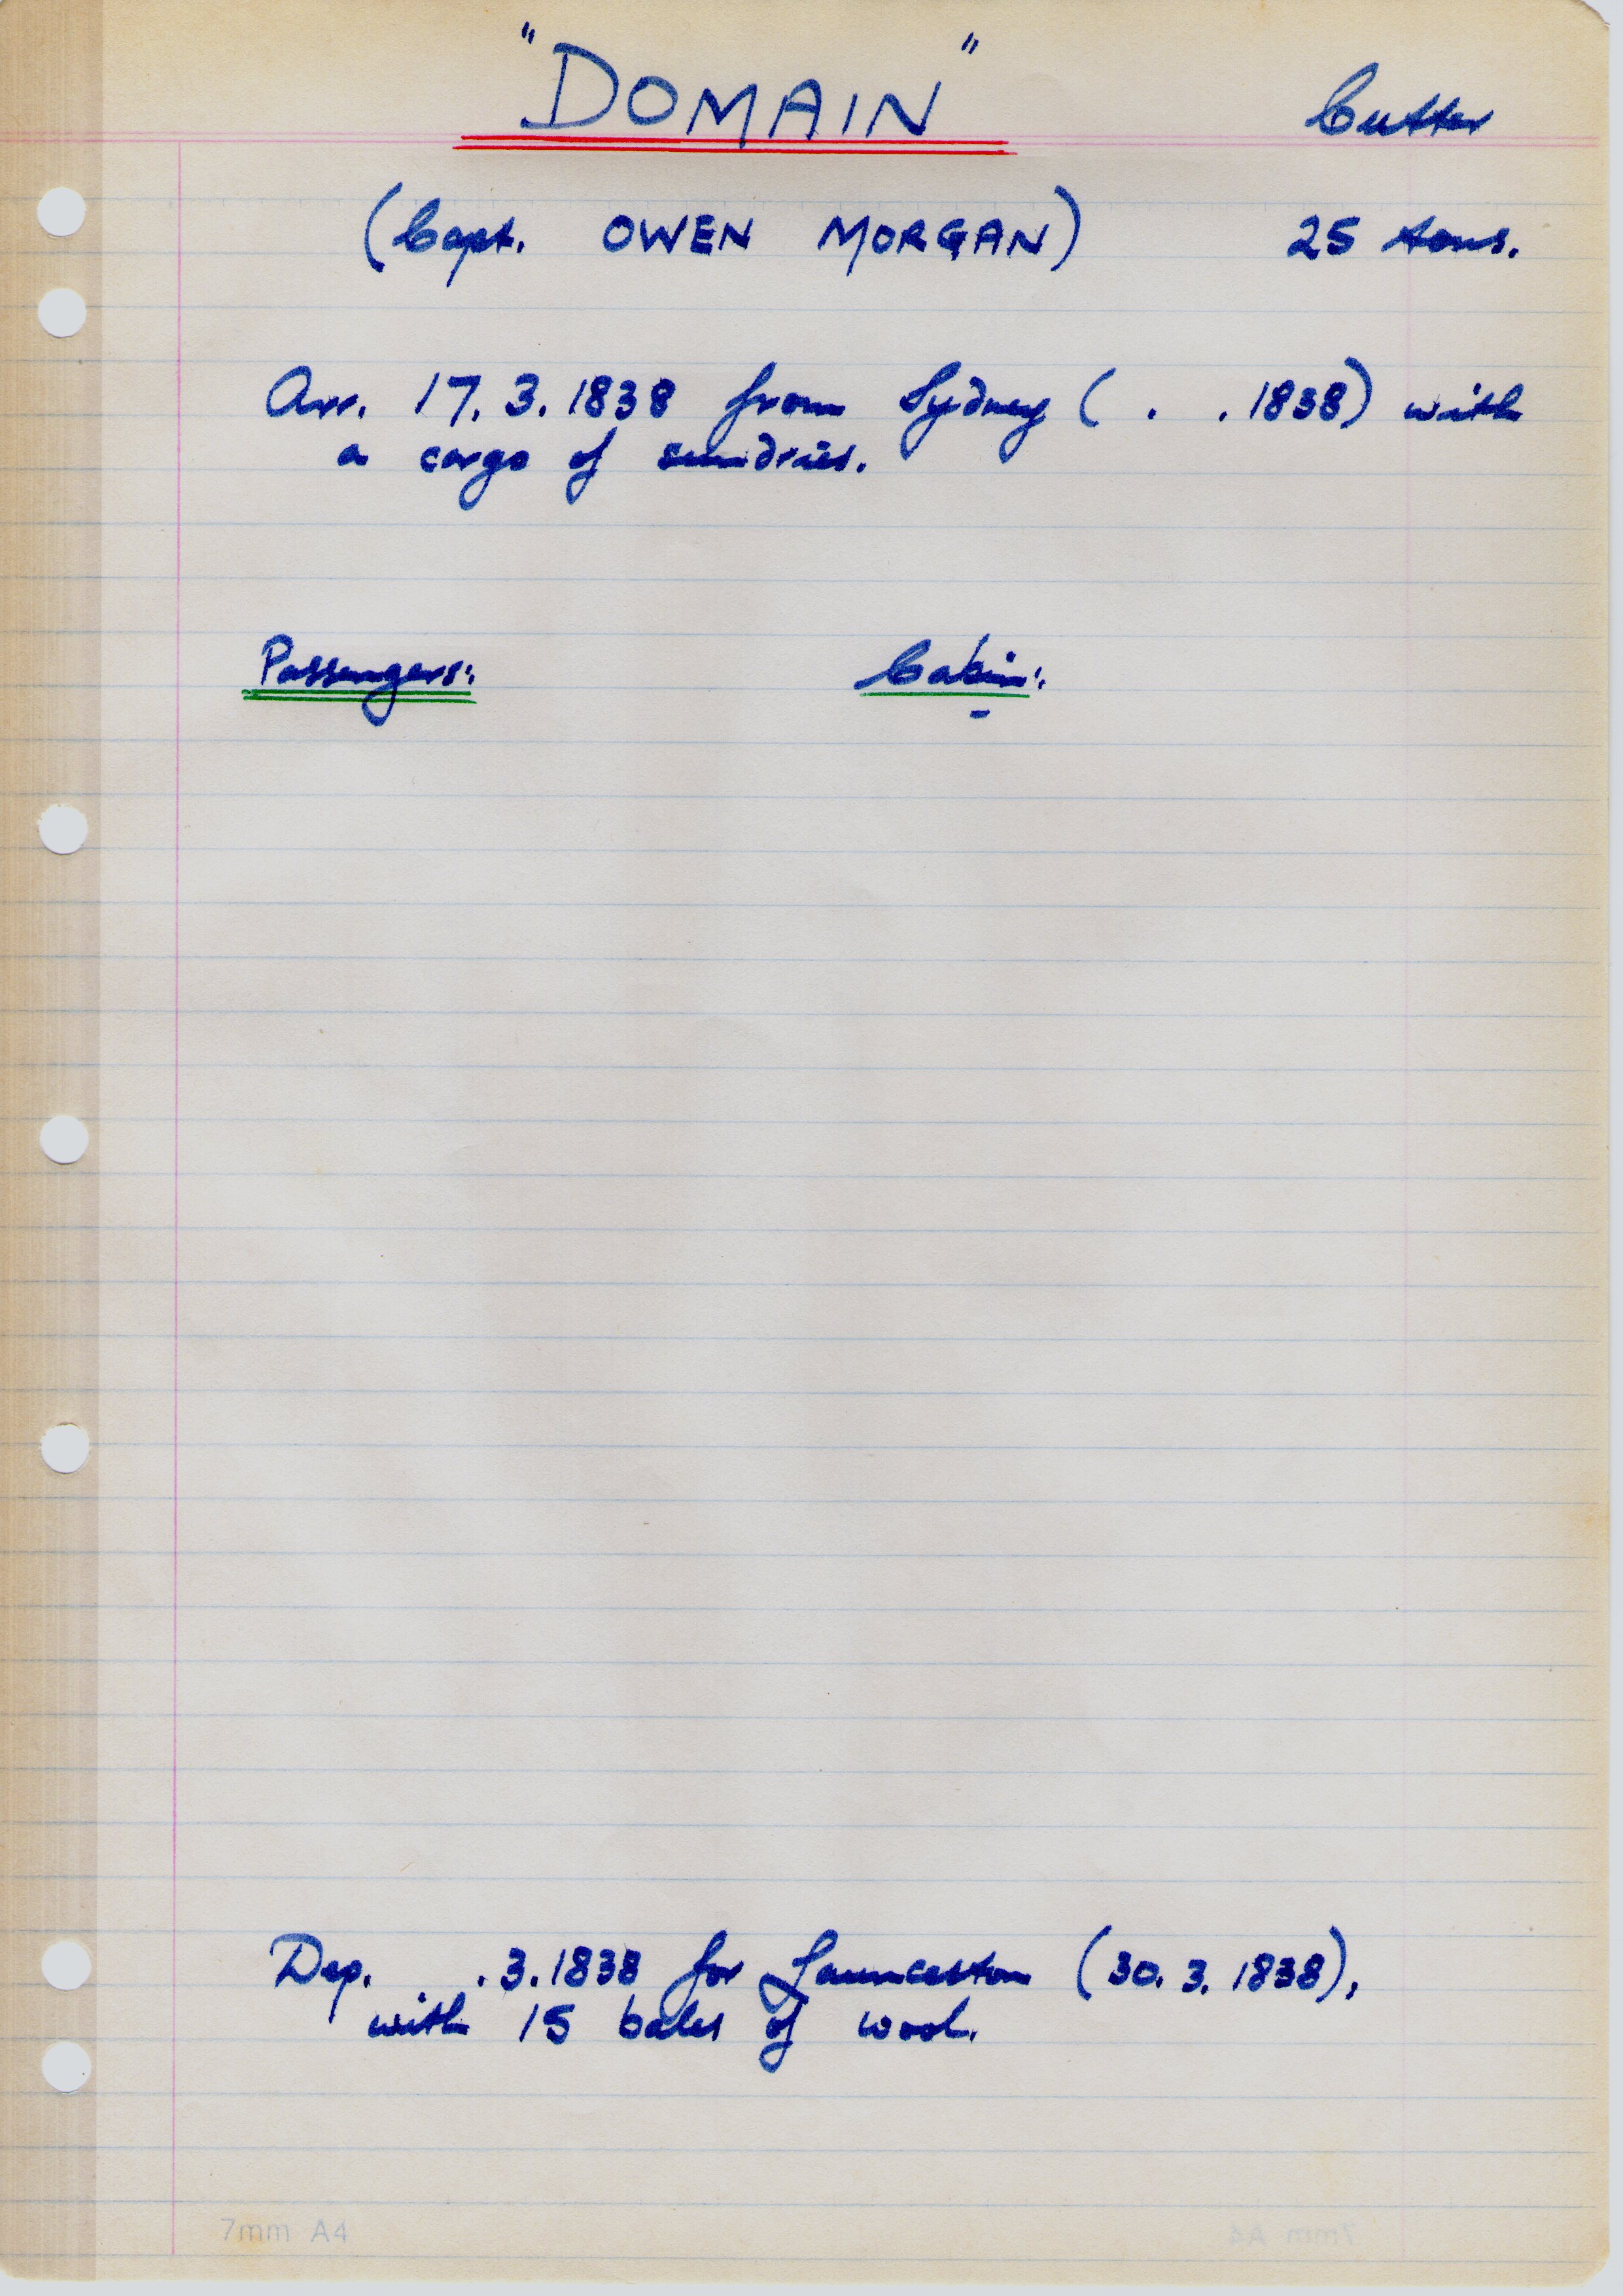 "DOMAIN" Cutter
(Capt. OWEN MORGAN) 25 tons.
Arr. 17.3.1838 from Sydney ( . .1838) with
a cargo of sundries.
Passengers: Cabin:
-
Dep. .3.1838 for Launceston (30.3.1838),
with 15 bales of wool.
7mm A4